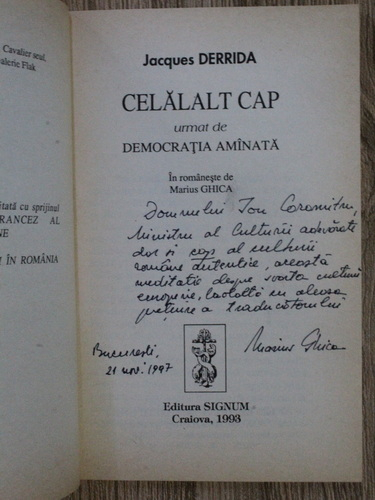 Cavalier seul,
alerie Flak
itată cu sprijinul
RANCEZ AL
NE
I ÎN ROMÂNIA
Jacques DERRIDA
CELĂLALT CAP
urmat de
DEMOCRAȚIA AMÎNATĂ
În românește de
Marius GHICA
Domnului Ion Caramitru,
Ministru al Culturii
dar și cap al culturii
române autentice, această
meditație despre soarta culturii
europene, laolaltă cu aleasa
prețuire a traducătorului
Marius Ghica
București,
21 nov. 1997
Editura SIGNUM
Craiova, 1993